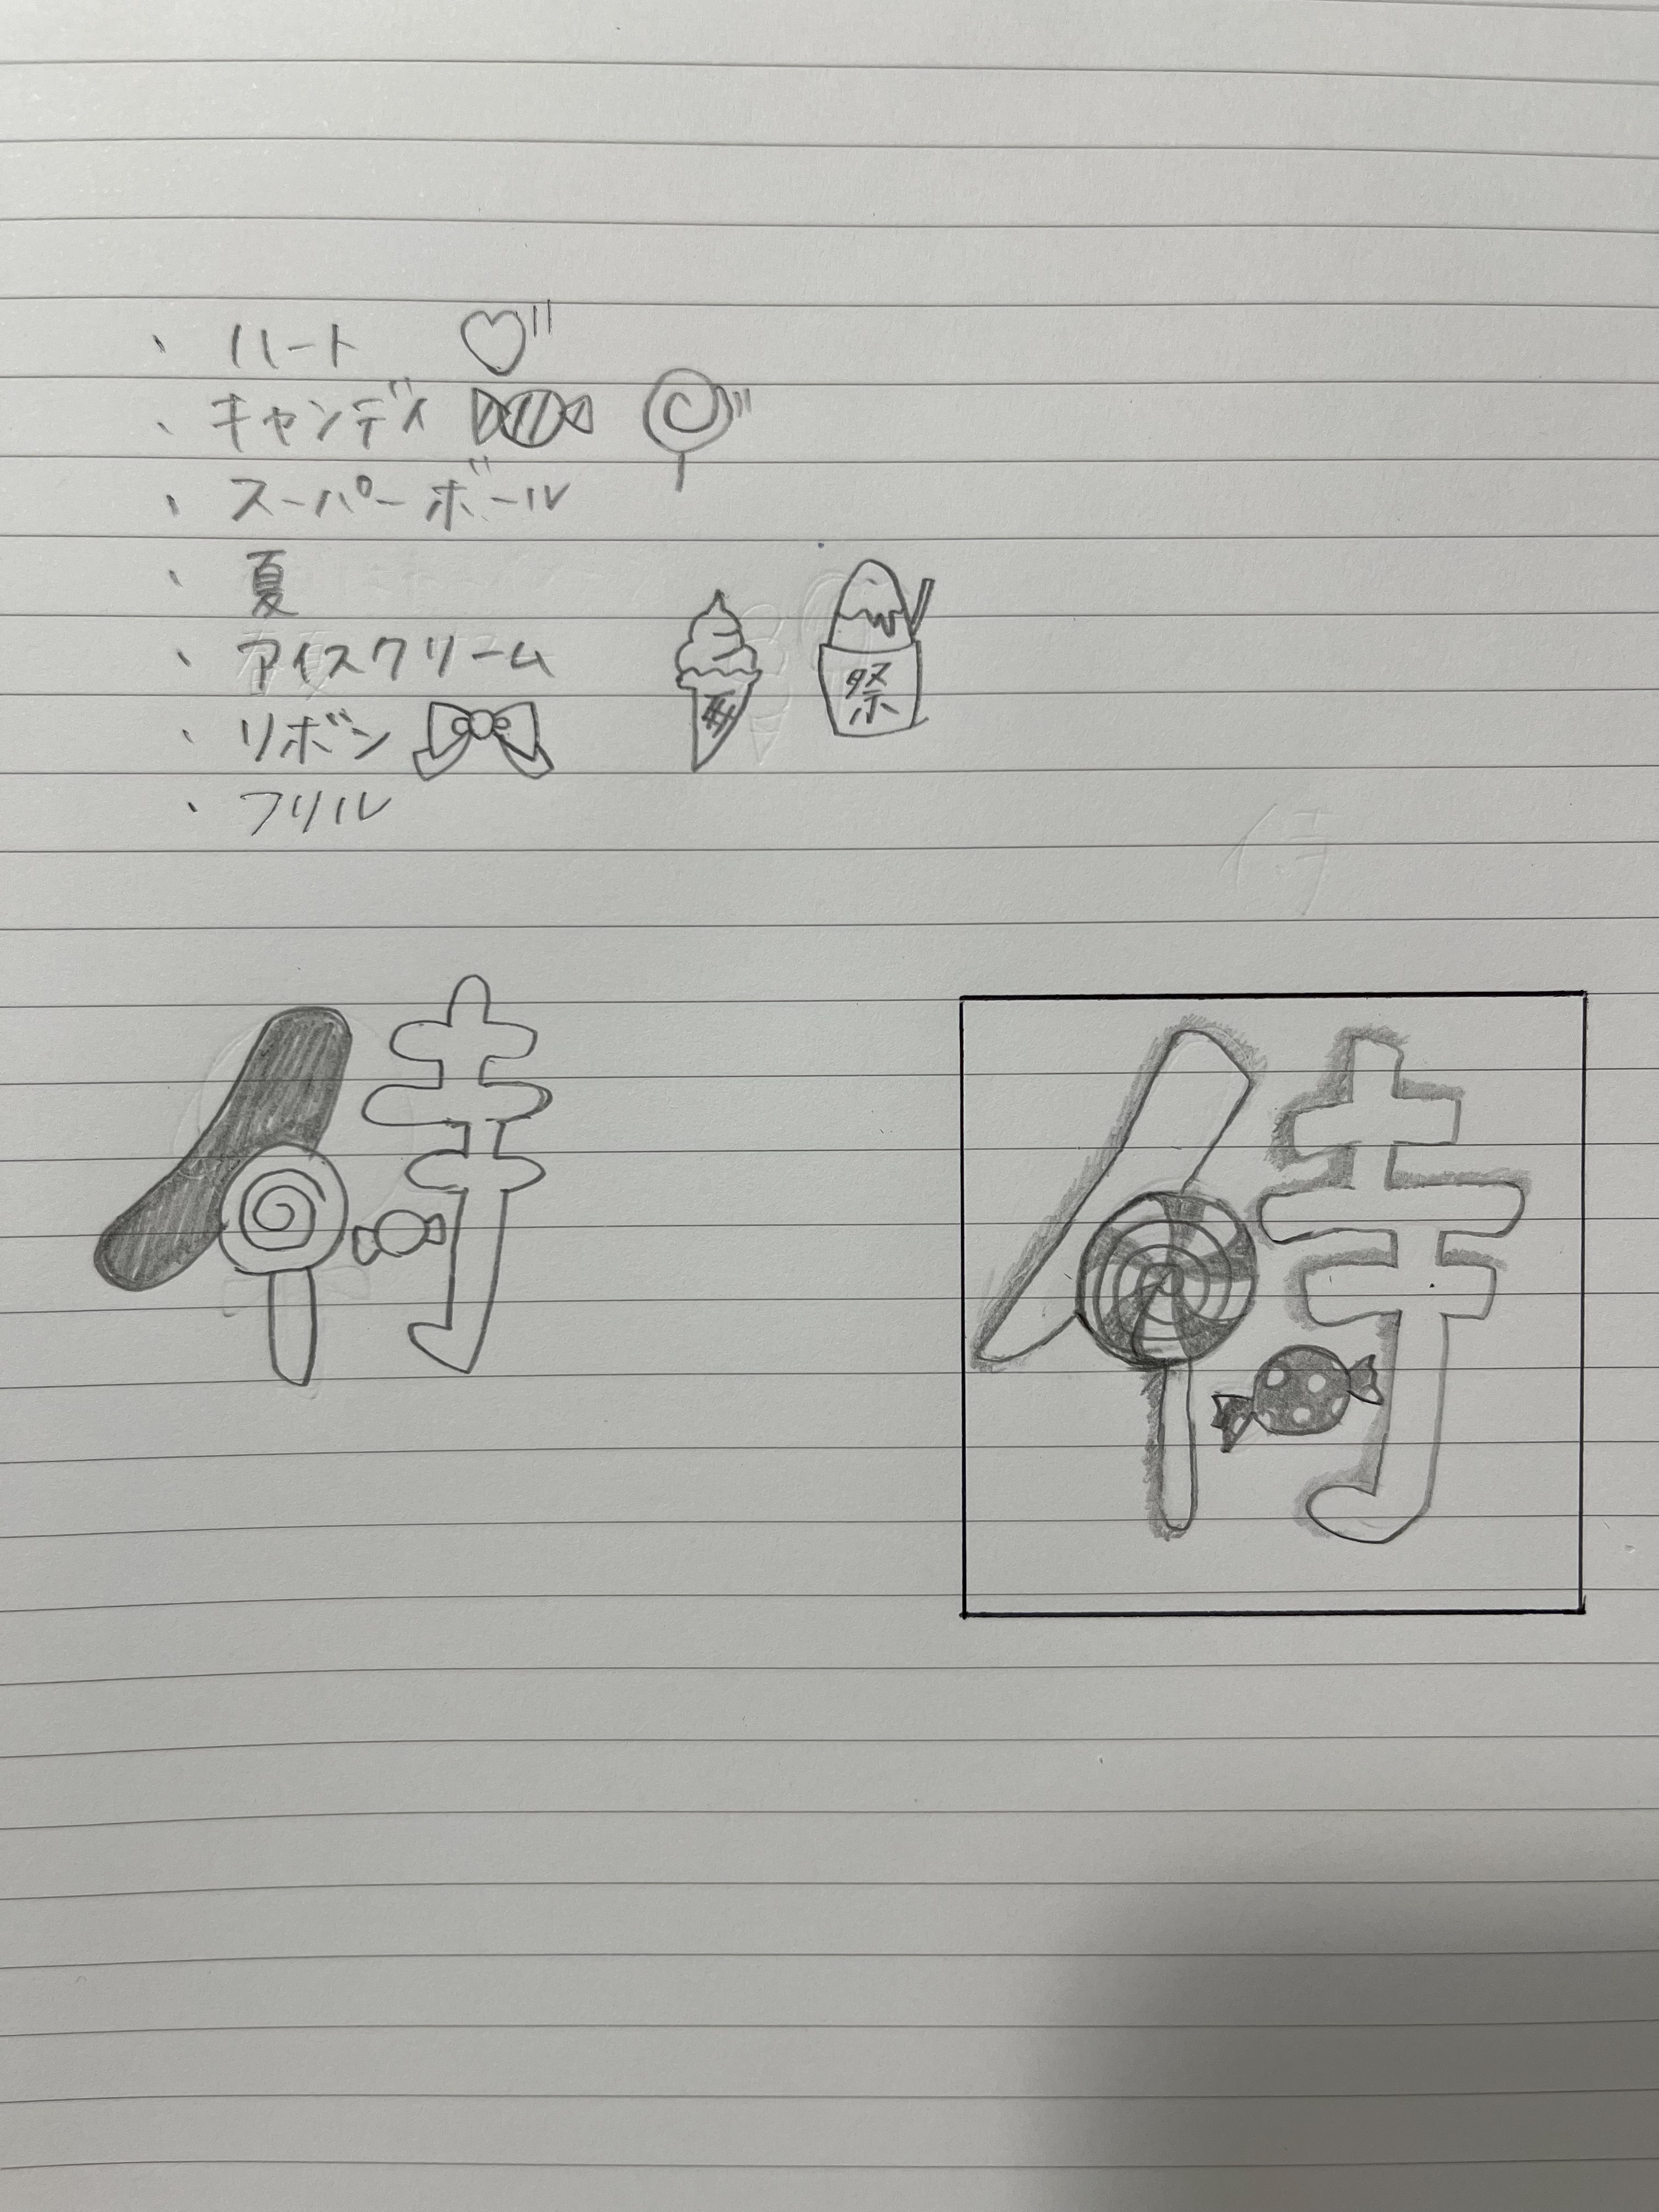 ・ハート
・キャンディ
・スーパーボール
・夏
・アイスクリーム
祭
・リボン
・フリル
侍
侍